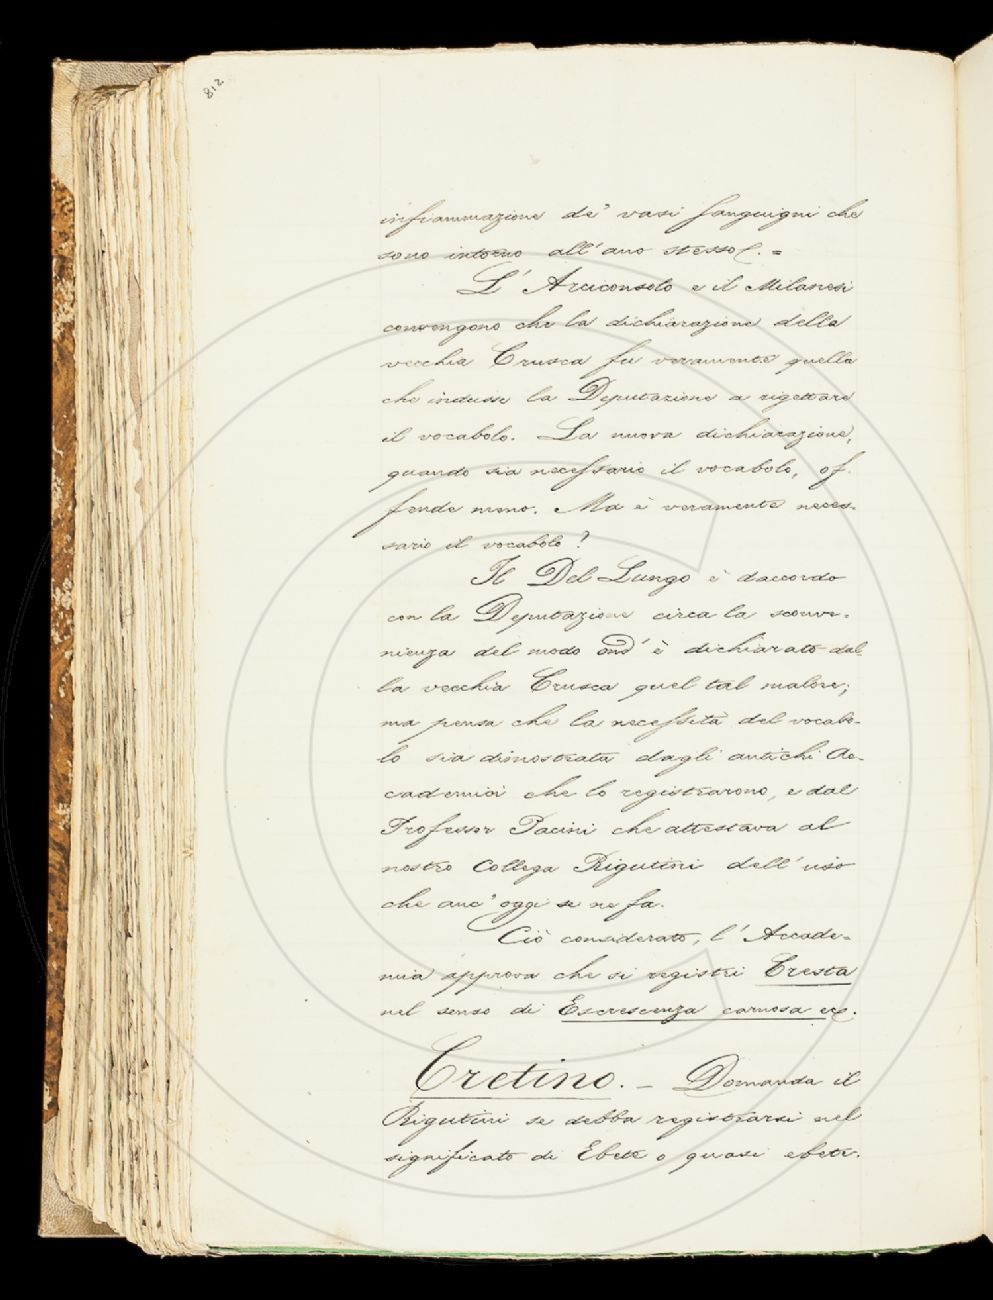 812
infiammazione de' vasi sanguigni che
sono intorno all'ano stesso. =
L'Arciconsolo e il Milanesi
convengono che la dichiarazione della
vecchia Crusca fu veramente quella
che indusse la Deputazione a rigettare
il vocabolo. La nuova dichiarazione,
quando sia necessario il vocabolo, of-
fende meno. Ma è veramente neces-
sario il vocabolo?
Il Del Lungo è daccordo
con la Deputazione circa la sconve-
nienza del modo ond'è dichiarato dal-
la vecchia Crusca quel tal malore;
ma pensa che la necessità del vocabo-
lo sia dimostrata dagli antichi Ac-
cademici che lo registrarono, e dal
Professor Pacini che attestava al
nostro Collega Rigutini dell'uso
che anc'oggi se ne fa.
Ciò considerato, l'Accade-
mia approva che si registri Cresta
nel senso di Escrescenza carnosa ec.
Cretino. - Domanda il
Rigutini se debba registrarsi nel
significato di Ebete o quasi ebete.